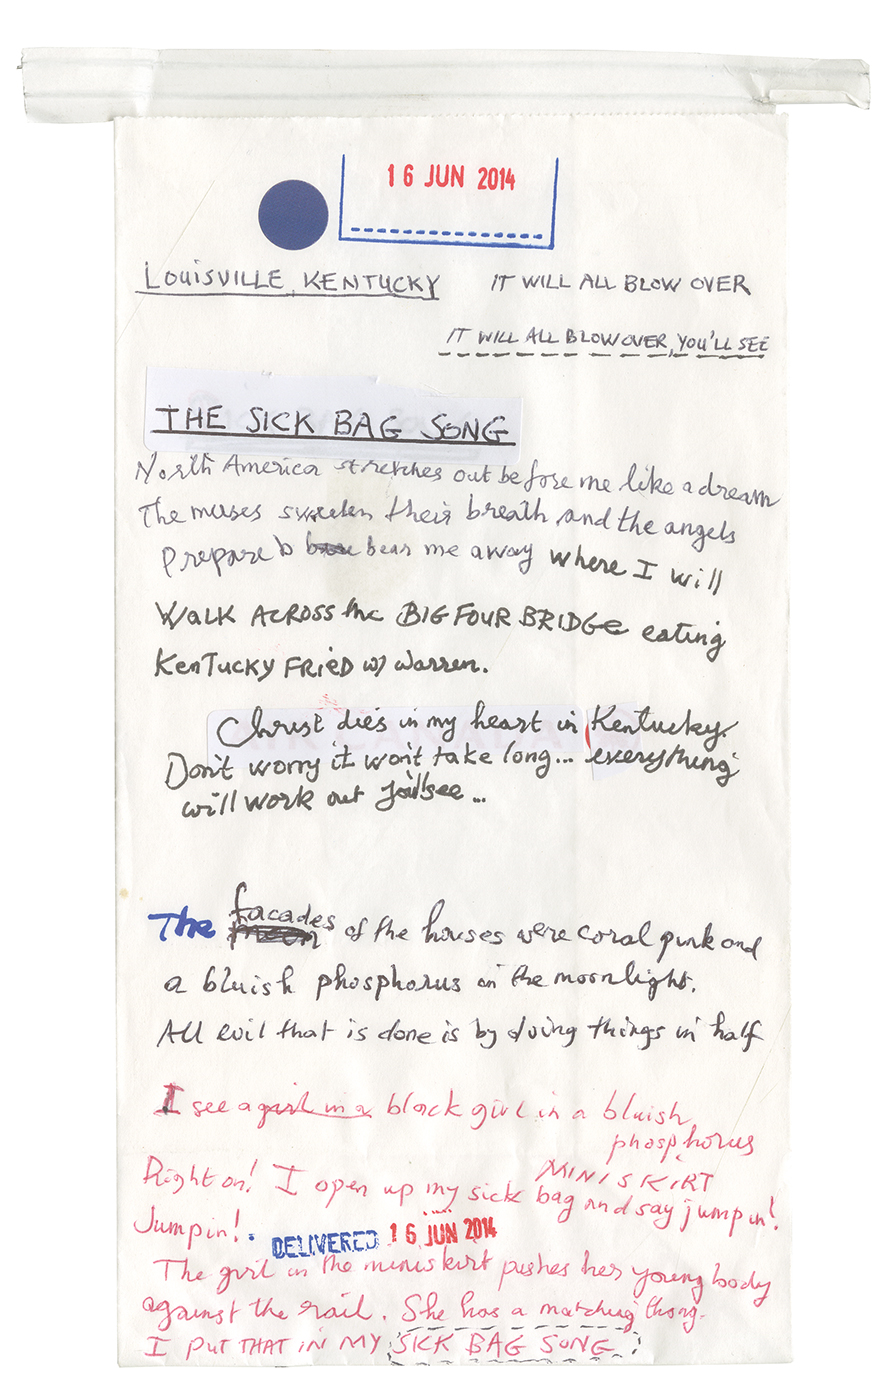 16 JUN 2014
LOUISVILLE, KENTUCKY IT WILL ALL BLOW OVER
IT WILL ALL BLOW OVER, YOU'LL SEE
THE SICK BAG SONG
North America stretches out before me like a dream
The muses sweeten their breath and the angels
Prepare to bear me away where I will
WALK ACROSS the BIG FOUR BRIDGE eating
KENTUCKY FRIED w/ Warren.
Christ dies in my heart in Kentucky.
Don't worry it won't take long... everything
will work out you'll see...
The facades of the houses were coral pink and
a bluish phosphorus in the moonlight.
All evil that is done is by doing things in half
I see a girl in a black girl in a bluish
phosphorus
MINISKIRT
Right on! I open up my sick bag and say jump in!
Jump in!
DELIVERED 16 JUN 2014
The girl in the miniskirt pushes her young body
against the rail. She has a matching thong.
I PUT THAT IN MY SICK BAG SONG